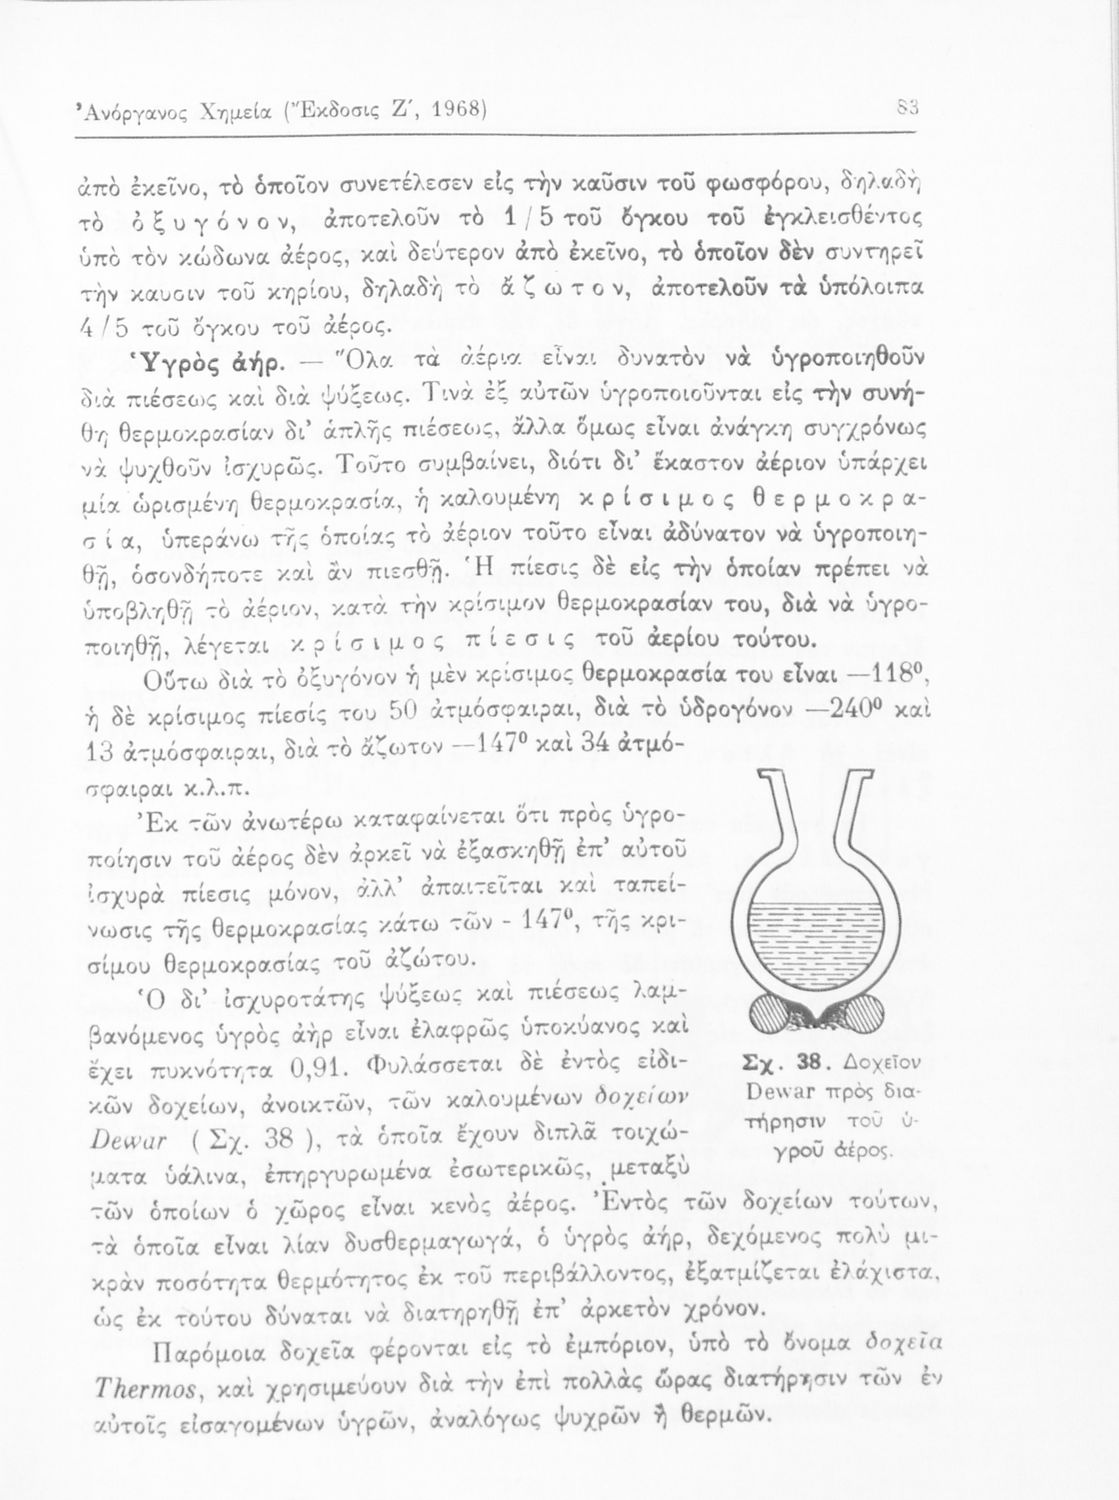 Ἀνόργανος Χημεία (Ἔκδοσις Ζ΄, 1968) 83
ἀπὸ ἐκεῖνο, τὸ ὁποῖον συνετέλεσεν εἰς τὴν καῦσιν τοῦ φωσφόρου, δηλαδὴ
τὸ ὀξυγόνον, ἀποτελοῦν τὸ 1/5 τοῦ ὄγκου τοῦ ἐγκλεισθέντος
ὑπὸ τὸν κώδωνα ἀέρος, καὶ δεύτερον ἀπὸ ἐκεῖνο, τὸ ὁποῖον δὲν συντηρεῖ
τὴν καυσιν τοῦ κηρίου, δηλαδὴ τὸ ἄζωτον, ἀποτελοῦν τὰ ὑπόλοιπα
4/5 τοῦ ὄγκου τοῦ ἀέρος.
Ὑγρὸς ἀήρ. — Ὅλα τὰ ἀέρια εἶναι δυνατὸν νὰ ὑγροποιηθοῦν
διὰ πιέσεως καὶ διὰ ψύξεως. Τινὰ ἐξ αὐτῶν ὑγροποιοῦνται εἰς τὴν συνή-
θη θερμοκρασίαν δι’ ἁπλῆς πιέσεως, ἄλλα ὅμως εἶναι ἀνάγκη συγχρόνως
νὰ ψυχθοῦν ἰσχυρῶς. Τοῦτο συμβαίνει, διότι δι’ ἕκαστον ἀέριον ὑπάρχει
μία ὡρισμένη θερμοκρασία, ἡ καλουμένη κρίσιμος θερμοκρα-
σία, ὑπεράνω τῆς ὁποίας τὸ ἀέριον τοῦτο εἶναι ἀδύνατον νὰ ὑγροποιη-
θῇ, ὁσονδήποτε καὶ ἂν πιεσθῇ. Ἡ πίεσις δὲ εἰς τὴν ὁποίαν πρέπει νὰ
ὑποβληθῇ τὸ ἀέριον, κατὰ τὴν κρίσιμον θερμοκρασίαν του, διὰ νὰ ὑγρο-
ποιηθῇ, λέγεται κρίσιμος πίεσις τοῦ ἀερίου τούτου.
Οὕτω διὰ τὸ ὀξυγόνον ἡ μὲν κρίσιμος θερμοκρασία του εἶναι —118⁰,
ἡ δὲ κρίσιμος πίεσίς του 50 ἀτμόσφαιραι, διὰ τὸ ὑδρογόνον —240⁰ καὶ
13 ἀτμόσφαιραι, διὰ τὸ ἄζωτον —147⁰ καὶ 34 ἀτμό-
σφαιραι κ.λ.π.
Ἐκ τῶν ἀνωτέρω καταφαίνεται ὅτι πρὸς ὑγρο-
ποίησιν τοῦ ἀέρος δὲν ἀρκεῖ νὰ ἐξασκηθῇ ἐπ’ αὐτοῦ
ἰσχυρὰ πίεσις μόνον, ἀλλ’ ἀπαιτεῖται καὶ ταπεί-
νωσις τῆς θερμοκρασίας κάτω τῶν - 147⁰, τῆς κρι-
σίμου θερμοκρασίας τοῦ ἀζώτου.
Ὁ δι’ ἰσχυροτάτης ψύξεως καὶ πιέσεως λαμ-
βανόμενος ὑγρὸς ἀὴρ εἶναι ἐλαφρῶς ὑποκύανος καὶ
ἔχει πυκνότητα 0,91. Φυλάσσεται δὲ ἐντὸς εἰδι-
κῶν δοχείων, ἀνοικτῶν, τῶν καλουμένων δοχείων
Dewar (Σχ. 38), τὰ ὁποῖα ἔχουν διπλᾶ τοιχώ-
ματα ὑάλινα, ἐπηργυρωμένα ἐσωτερικῶς, μεταξὺ
τῶν ὁποίων ὁ χῶρος εἶναι κενὸς ἀέρος. Ἐντὸς τῶν δοχείων τούτων,
τὰ ὁποῖα εἶναι λίαν δυσθερμαγωγά, ὁ ὑγρὸς ἀήρ, δεχόμενος πολὺ μι-
κρὰν ποσότητα θερμότητος ἐκ τοῦ περιβάλλοντος, ἐξατμίζεται ἐλάχιστα,
ὡς ἐκ τούτου δύναται νὰ διατηρηθῇ ἐπ’ ἀρκετὸν χρόνον.
Παρόμοια δοχεῖα φέρονται εἰς τὸ ἐμπόριον, ὑπὸ τὸ ὄνομα δοχεῖα
Thermos, καὶ χρησιμεύουν διὰ τὴν ἐπὶ πολλὰς ὥρας διατήρησιν τῶν ἐν
αὐτοῖς εἰσαγομένων ὑγρῶν, ἀναλόγως ψυχρῶν ἢ θερμῶν.
Σχ. 38. Δοχεῖον
Dewar πρὸς δια-
τήρησιν τοῦ ὑ-
γροῦ ἀέρος.